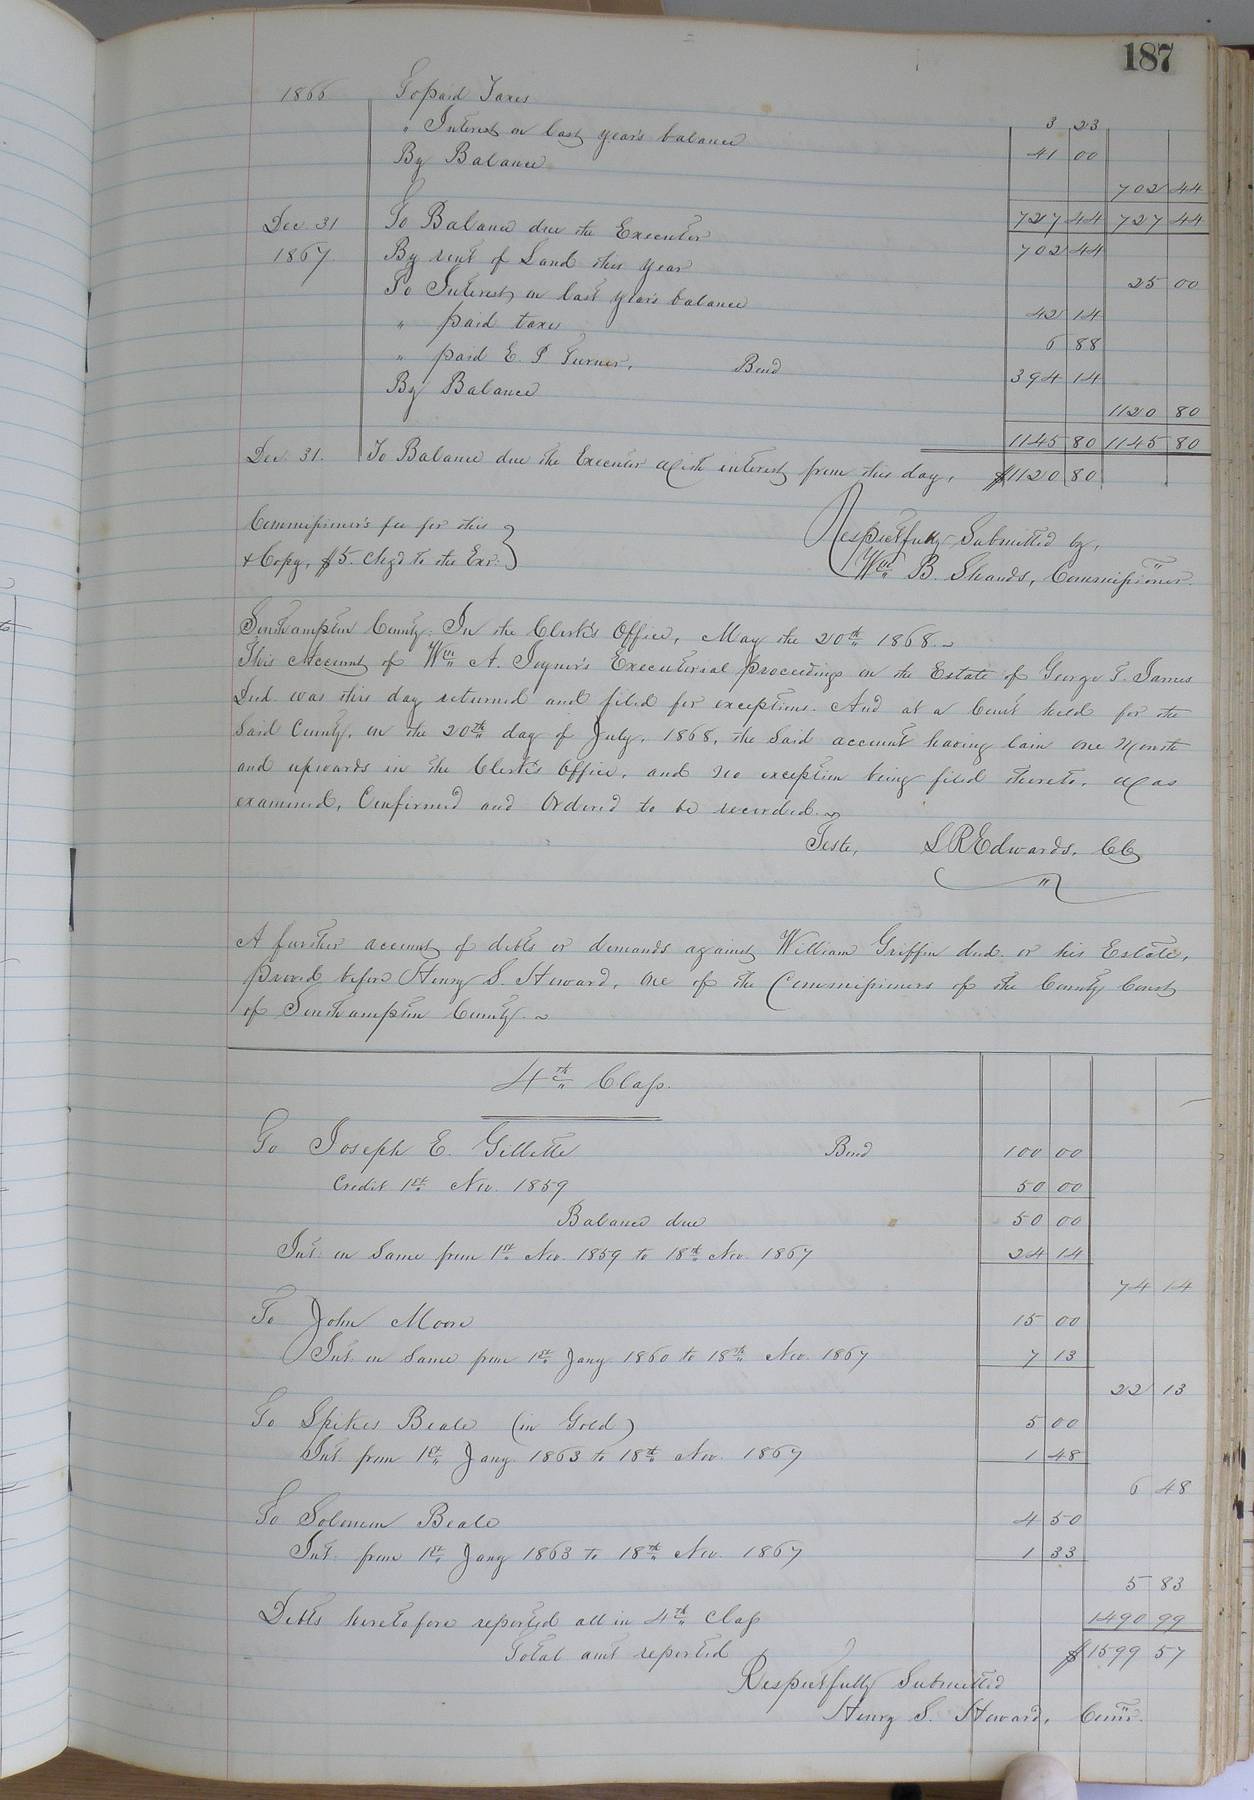 187
1866 To paid Taxes 3 23
" Interest on last year's balance 41 00
By Balance 702 44
727 44 727 44
Dec 31 To Balance due the Executor 702 44
1867 By rent of Land this year 25 00
To Interest on last year's balance 42 14
" paid taxes 6 88
" paid E. P. Turner, Bond 394 14
By Balance 1120 80
1145 80 1145 80
Dec. 31. To Balance due the Executor with interest from this day, $1120 80
Commissioner's fee for this
& Copy, $5. Chgd to the Exr.
Respectfully Submitted by,
Wm B. Shands, Commissioner.
Southampton County: In the Clerk's Office, May the 20th 1868.
This Account of Wm A. Joyner's Executorial proceedings on the Estate of George T. James
Decd. was this day returned and filed for exceptions. And at a Court held for the
Said County, on the 20th day of July, 1868, the said account having lain one Month
and upwards in the Clerk's Office, and no exception being filed thereto, was
examined, Confirmed and Ordered to be recorded.
Teste, L R Edwards, CC
A further account of debts or demands against William Griffin decd. or his Estate,
proved before Henry S. Howard, one of the Commissioners of the County Court
of Southampton County.
4th Class.
To Joseph E. Gillette Bond 100 00
Credit 1st Nov. 1859 50 00
Balance due 50 00
Int. on Same from 1st Nov. 1859 to 18th Nov. 1867 24 14
74 14
To John Moore 15 00
Int. on Same from 1st Jany 1860 to 18th Nov. 1867 7 13
22 13
To Spikes Beale (in Gold) 5 00
Int. from 1st Jany 1863 to 18th Nov. 1867 1 48
6 48
To Solomon Beale 4 50
Int. from 1st Jany 1863 to 18th Nov. 1867 1 33
5 83
Debts heretofore reported all in 4th Class 1490 99
Total amt reported $1599 57
Respectfully Submitted
Henry S. Howard, Comr.